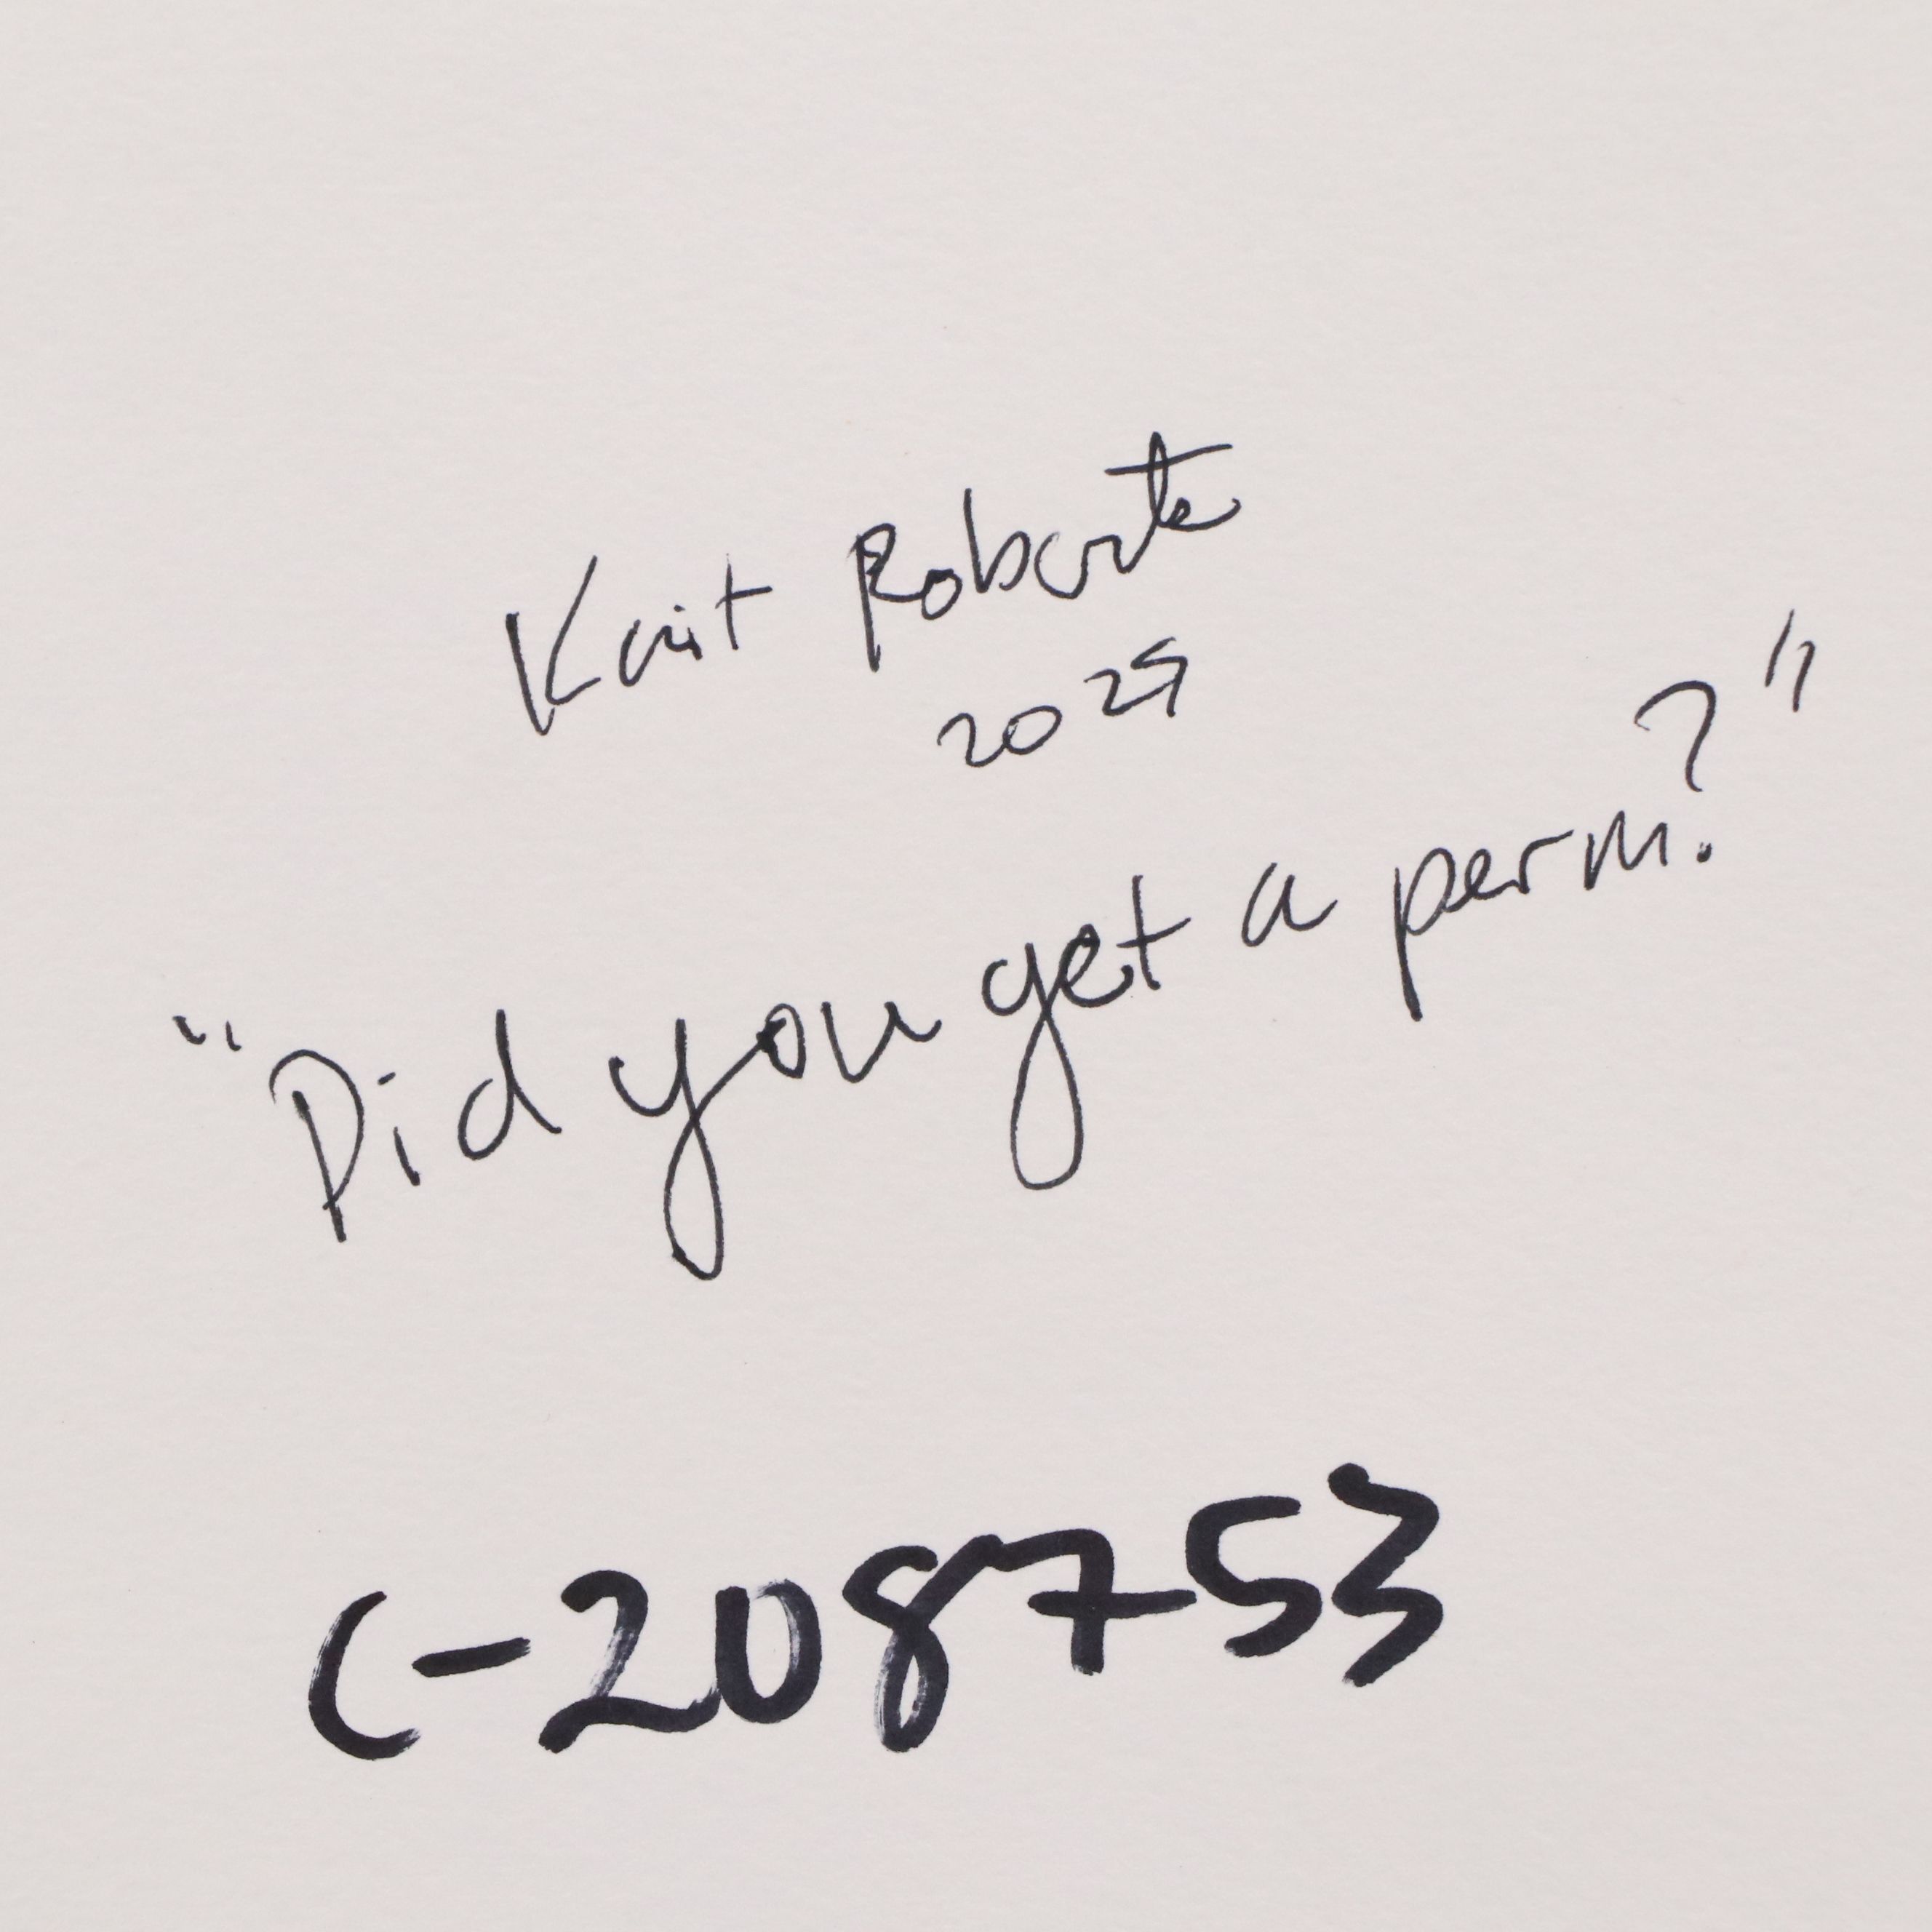 Kait Roberts
2025
"Did you get a perm?"
C-208753